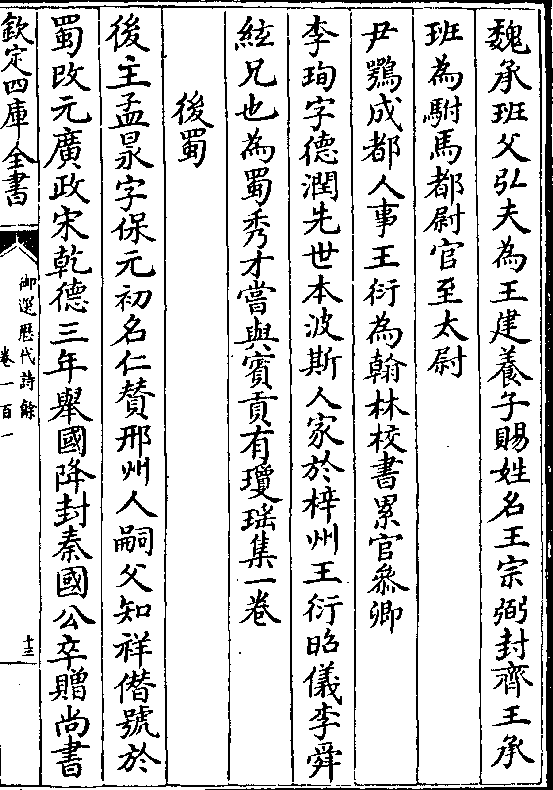 魏承班父弘夫為王建養子賜姓名王宗弼封齊王承
班為駙馬都尉官至太尉
尹鶚成都人事王衍為翰林校書累官叅卿
李珣字德潤先世本波斯人家於梓州王衍昭儀李舜
絃兄也為蜀秀才嘗與賓貢有瓊瑤集一卷
後蜀
後主孟㫤字保元初名仁贊邢州人嗣父知祥僭號於
蜀改元廣政宋乾德三年舉國降封秦國公卒贈尚書
欽定四庫全書
御選歷代詩餘
卷一百一
十三